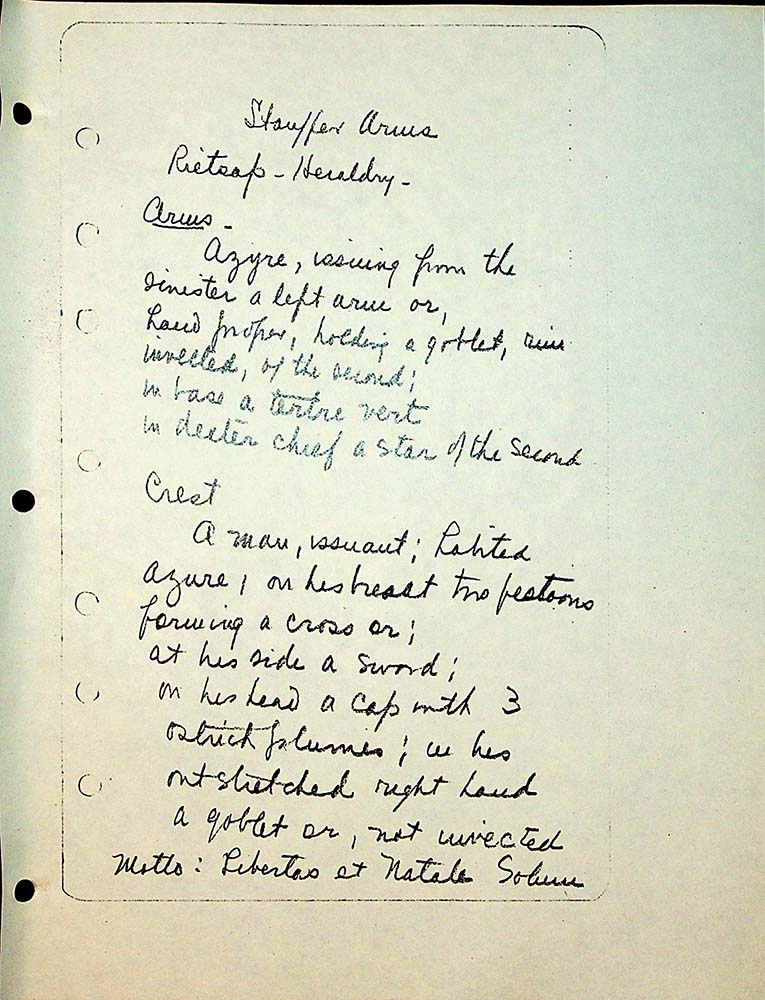 Stauffer Arms
Rietsap - Heraldry -
Arms -
Azyre, issuing from the
sinister a left arm or,
hand proper, holding a goblet, rim
invected, of the second;
in base a tertre vert
in dexter chief a star of the second
Crest
A man, issuant; habited
azure; on his breast two festoons
forming a cross or;
at his side a sword;
on his head a cap with 3
ostrich plumes; in his
outstretched right hand
a goblet or, not invected
Motto: Libertas et Natale Solum